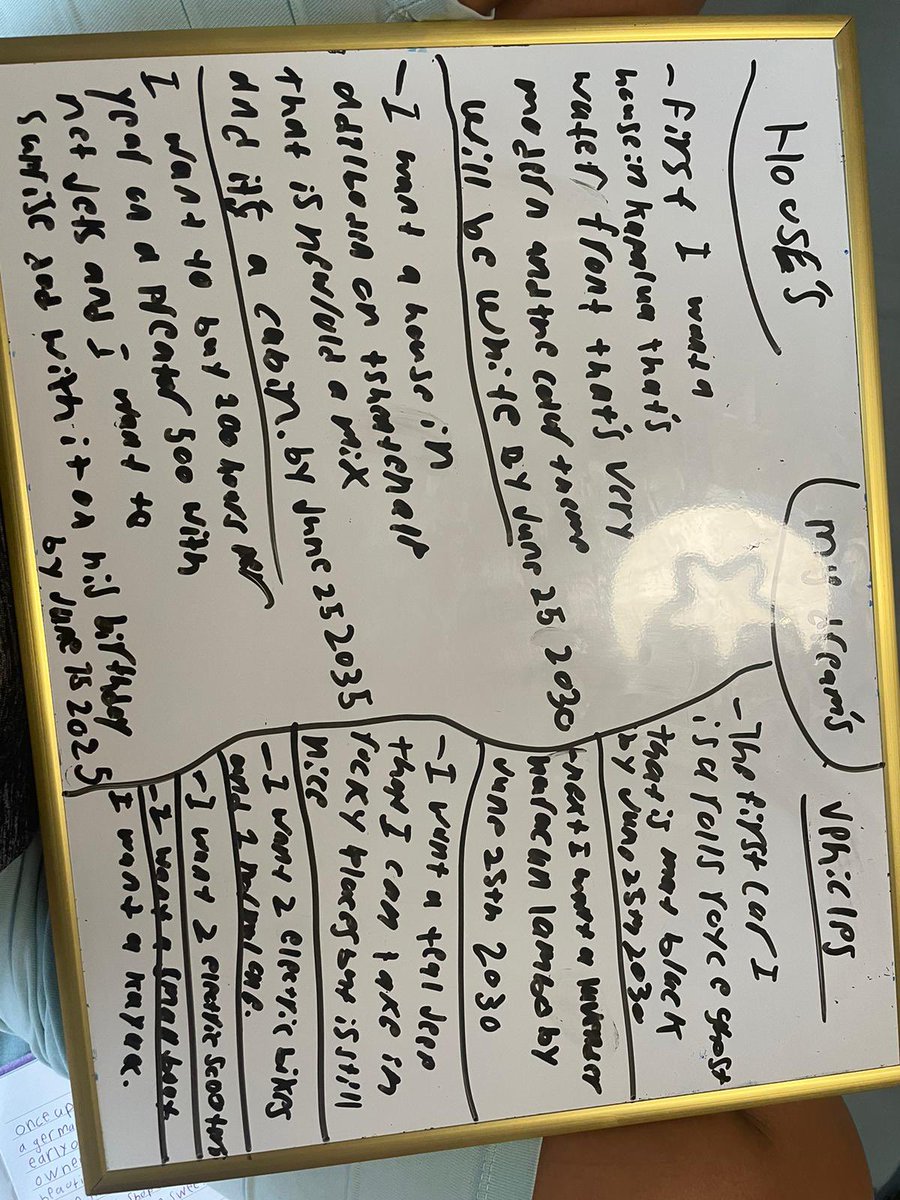 my dream's
HousE's
- first I want a
house in kapalua that's
water front that's very
modern and the color theme
will be white By June 25 2030
- I want a house in
that is new/old a mix
and its a cabin. by June 25 2035
I want to buy 200 hours per
year on a Pheator 500 with
net jets and I want to
surprise dad with it on his birthday
by June 25 2025
vehicles
- The first car I
is a rolls royce gost
that is mat black
by June 25th 2030
- next I want a
huracan lambo by
June 25th 2030
- I want a teal Jeep
that I can take in
rocky places but is still
nice
- I want 2 electric bikes
and 2 normal one.
- I want 2 electric scooters
- I want a small boat
I want a kayak.
once up
a germa
early
owne
beauti